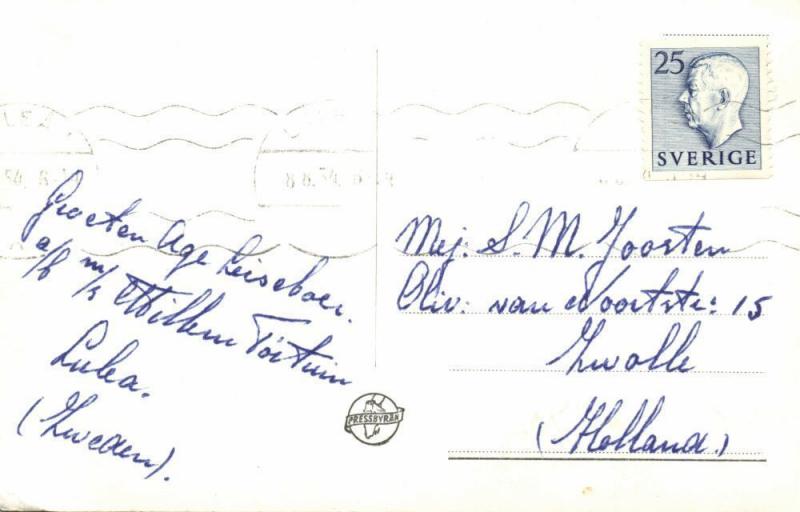 25
SVERIGE
8.8.54
Groeten Age Leiseboer.
a/b m/s Willem
Lulea.
(Zweden).
PRESSBYRÅN
Mej: S. M. Joosten
Oliv: van Noortstr: 15
Zwolle
(Holland.)